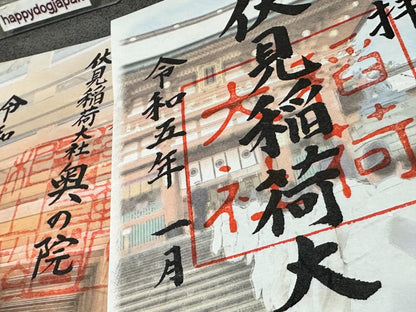 happydogjapan
拝
伏見稲荷大
令和五年 一月
伏見稲荷大社
奥の院
令和